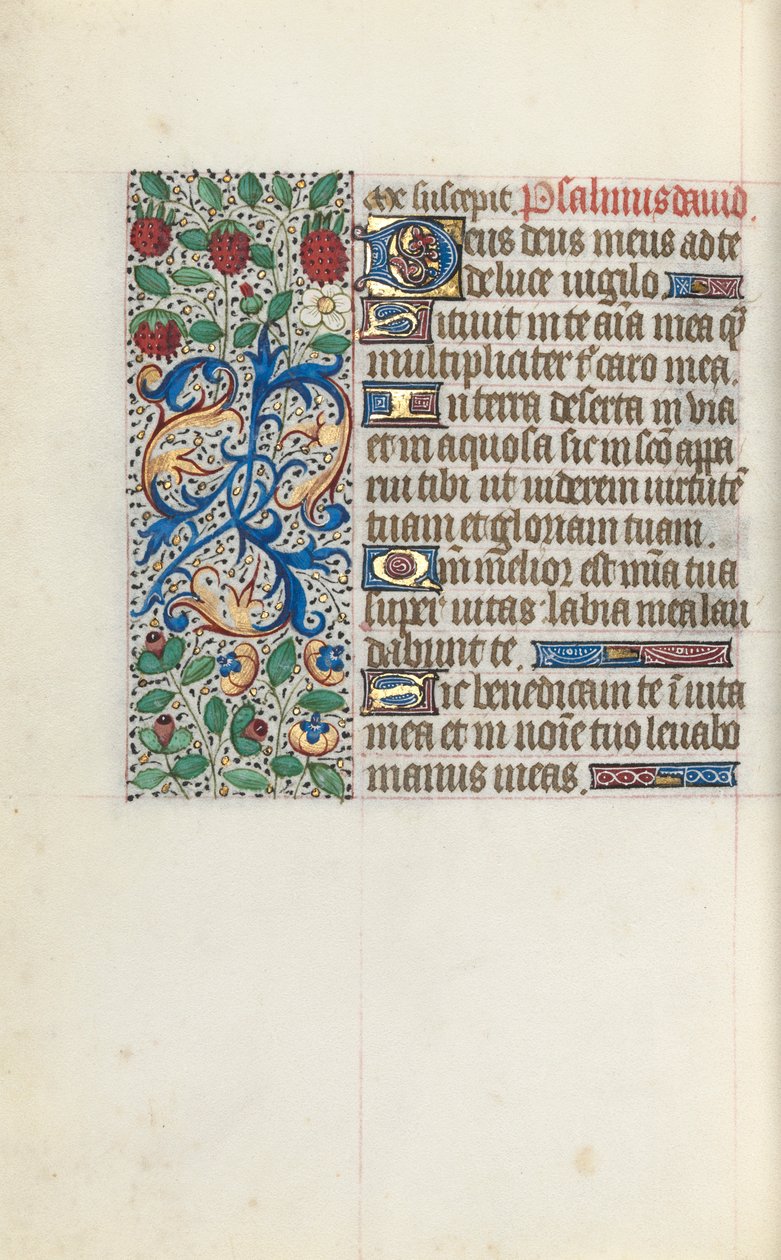 me suscepit. Psalmus dauid.
Deus deus meus ad te
de luce uigilo.
Sitiuit in te aīa mea q̄
multipliciter t̄ caro mea.
In terra deserta in uia
et in aquosa sic in scō appa
rui tibi ut uiderem uirtutē
tuam et gloriam tuam.
Qm̄ melior est mīa tua
super uitas labia mea lau
dabunt te.
Sic benedicam te ī uita
mea et in noīe tuo leuabo
manus meas.